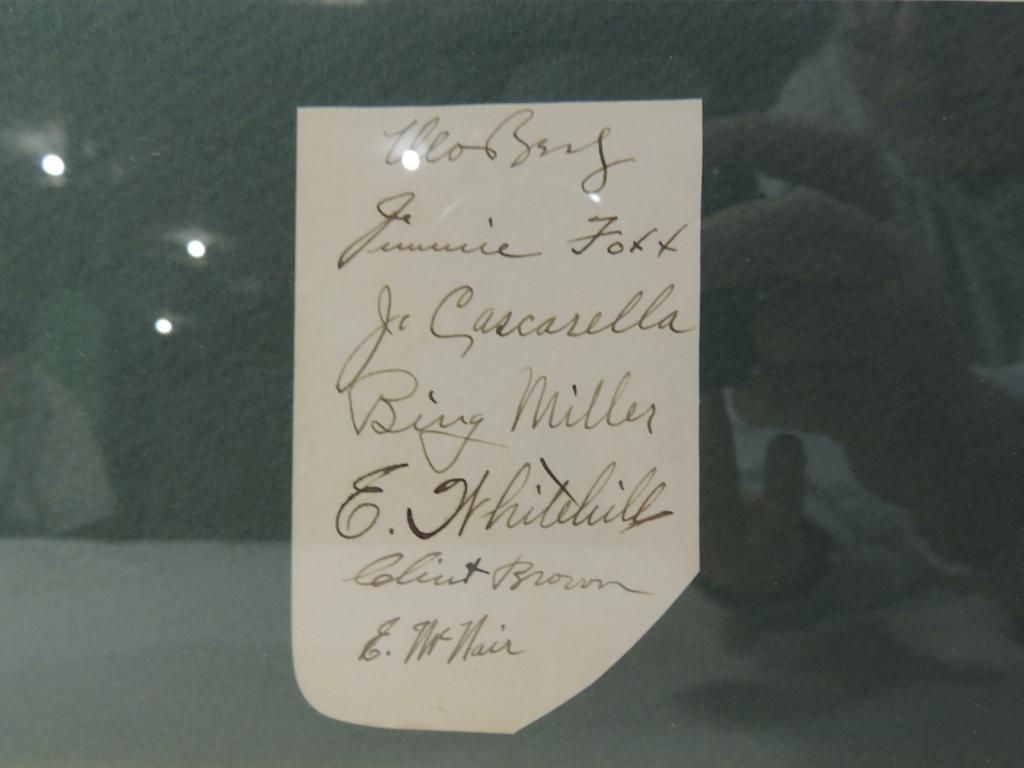 Moe Berg
Jimmie Foxx
J. Cascarella
Bing Miller
E. Whitehill
Clint Brown
E. McNair